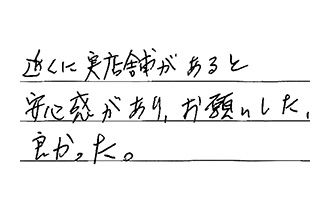 近くに実店舗があると
安心感があり、お願いした、
良かった。